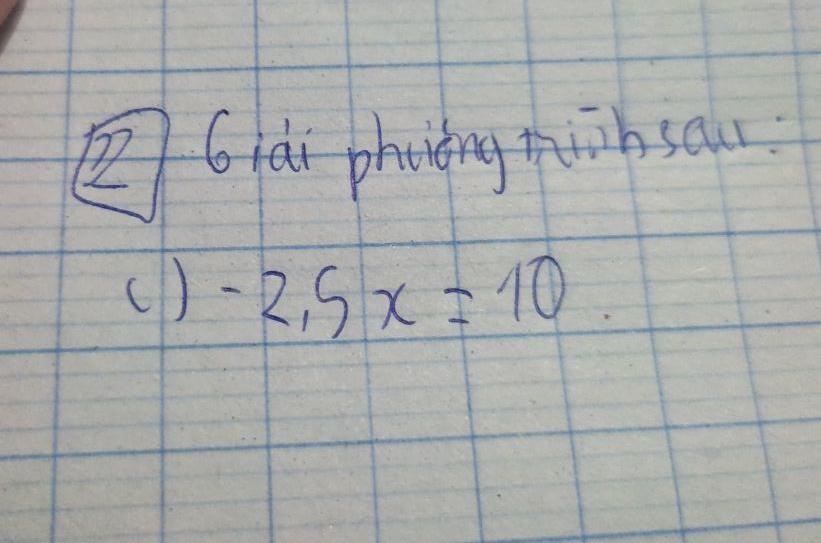 2 Giải phương trình sau:
c) -2,5x = 10.